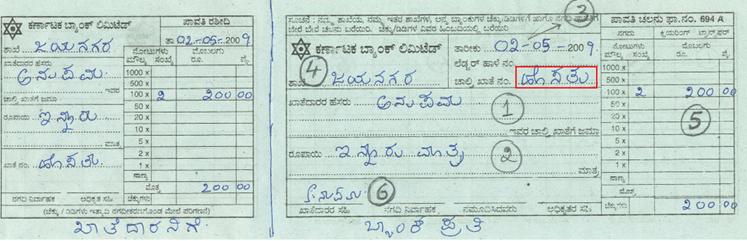 ಕರ್ಣಾಟಕ ಬ್ಯಾಂಕ್ ಲಿಮಿಟೆಡ್
ಪಾವತಿ ರಶೀದಿ
ಶಾಖೆ ಜಯನಗರ
ತಾ 02-05-2009
ಖಾತೆದಾರರ ಹೆಸರು
ಅನುಪಮ
ಇವರ
ಚಾಲ್ತಿ ಖಾತೆಗೆ ಜಮಾ
ರೂಪಾಯಿ ಇನ್ನೂರು
ಮಾತ್ರ
ಖಾತೆ ನಂ. ಹೊಸತು
ನಗದಿ ನಿರ್ವಾಹಕ ಅಧಿಕೃತ ಸಹಿ
ನೋಟುಗಳು ಮೊಬಲಗು
ಮೌಲ್ಯ ಸಂಖ್ಯೆ ರೂ. ಪೈ.
1000 x
500 x
100 x 2 200 00
50 x
20 x
10 x
5 x
2 x
1 x
ನಾಣ್ಯ
ಮೊತ್ತ 200 00
ಖಾತೆದಾರನಿಗೆ
2
ಕರ್ಣಾಟಕ ಬ್ಯಾಂಕ್ ಲಿಮಿಟೆಡ್
ತಾರೀಕು 02-05-2009
ಲೆಡ್ಜರ್ ಹಾಳೆ ನಂ
4
ಶಾಖೆ ಜಯನಗರ
ಚಾಲ್ತಿ ಖಾತೆ ನಂ. ಹೊಸತು
ಖಾತೆದಾರರ ಹೆಸರು ಅನುಪಮ
1
ಇವರ ಚಾಲ್ತಿ ಖಾತೆಗೆ ಜಮಾ
ರೂಪಾಯಿ ಇನ್ನೂರು ಮಾತ್ರ 2
ಮಾತ್ರ
6
ಖಾತೆದಾರರ ಸಹಿ ನಗದಿ ನಿರ್ವಾಹಕ ನಮೂದಿಸಿದವರು ಅಧಿಕೃತರ ಸಹಿ
ಬ್ಯಾಂಕ್ ಪ್ರತಿ
ಪಾವತಿ ಚಲನು ಫಾ.ನಂ. 694 A
ನೋಟುಗಳು ಮೊಬಲಗು
ಮೌಲ್ಯ ಸಂಖ್ಯೆ ರೂ. ಪೈ.
1000 x
500 x
100 x 2 200 00
50 x
20 x
10 x
5 x
2 x
1 x
5
ನಾಣ್ಯ
ಮೊತ್ತ
ಚೆಕ್ಕುಗಳು 200 00